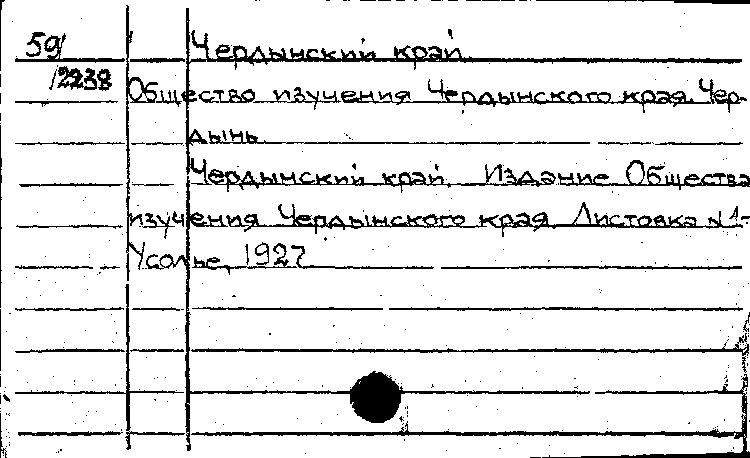 59/ Чердынский край.
12238
Общество изучения Чердынского края. Чер-
дынь.
Чердынский край. Издание Общества
изучения Чердынского края. Листовка № 1-
Усолье, 1927